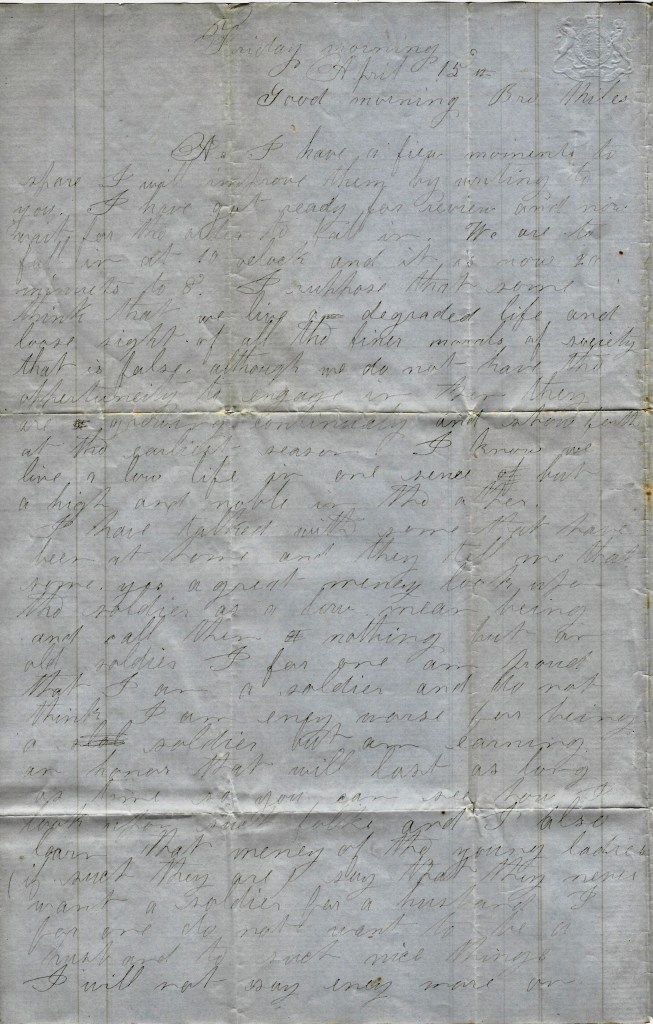 Friday morning
April 15th
Good morning, Bro Miles
As I have a few moments to
share I will improve them by writing to
you. I have got ready for review and now
wait for the order to fall in. We are to
fall in at 10 oclock and it is now 20
minuets to 8. I suppose that some
think that we live a degraded life and
loose sight of all the finer morals of society
that is false. although we do not have the
oppertunity to engage in them they
are growing continualy and
at the earliest season. I know we
live a low life in one sence of but
a high and noble in the other.
I have talked with some that have
been at home and they tell me that
some. yes a great meney look upon
the soldier as a low mean being
and call them nothing but an
old soldier I for one am proud
that I am a soldier and do not
think I am eney worse for being
a soldier but am earning
an honor that will last as long
as time so you can see how I
look upon such talk and I also
learn that meney of the young ladies
(if such they are) say that they never
want a soldier for a husband I
for one do not want to be a
husband to such nice things
I will not say eney more on